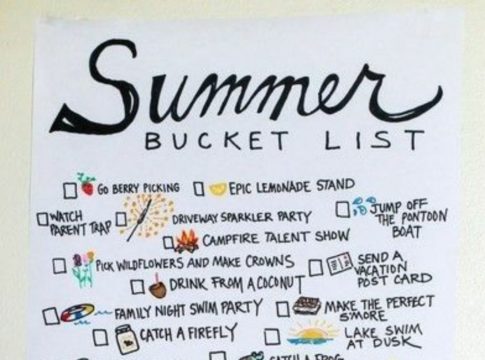 Summer
BUCKET LIST
GO BERRY PICKING EPIC LEMONADE STAND
WATCH
PARENT TRAP
DRIVEWAY SPARKLER PARTY
JUMP OFF
THE PONTOON
BOAT
CAMPFIRE TALENT SHOW
PICK WILDFLOWERS AND MAKE CROWNS
SEND A
VACATION
POST CARD
DRINK FROM A COCONUT
FAMILY NIGHT SWIM PARTY
MAKE THE PERFECT
S'MORE
CATCH A FIREFLY
LAKE SWIM
AT DUSK
CATCH A FROG